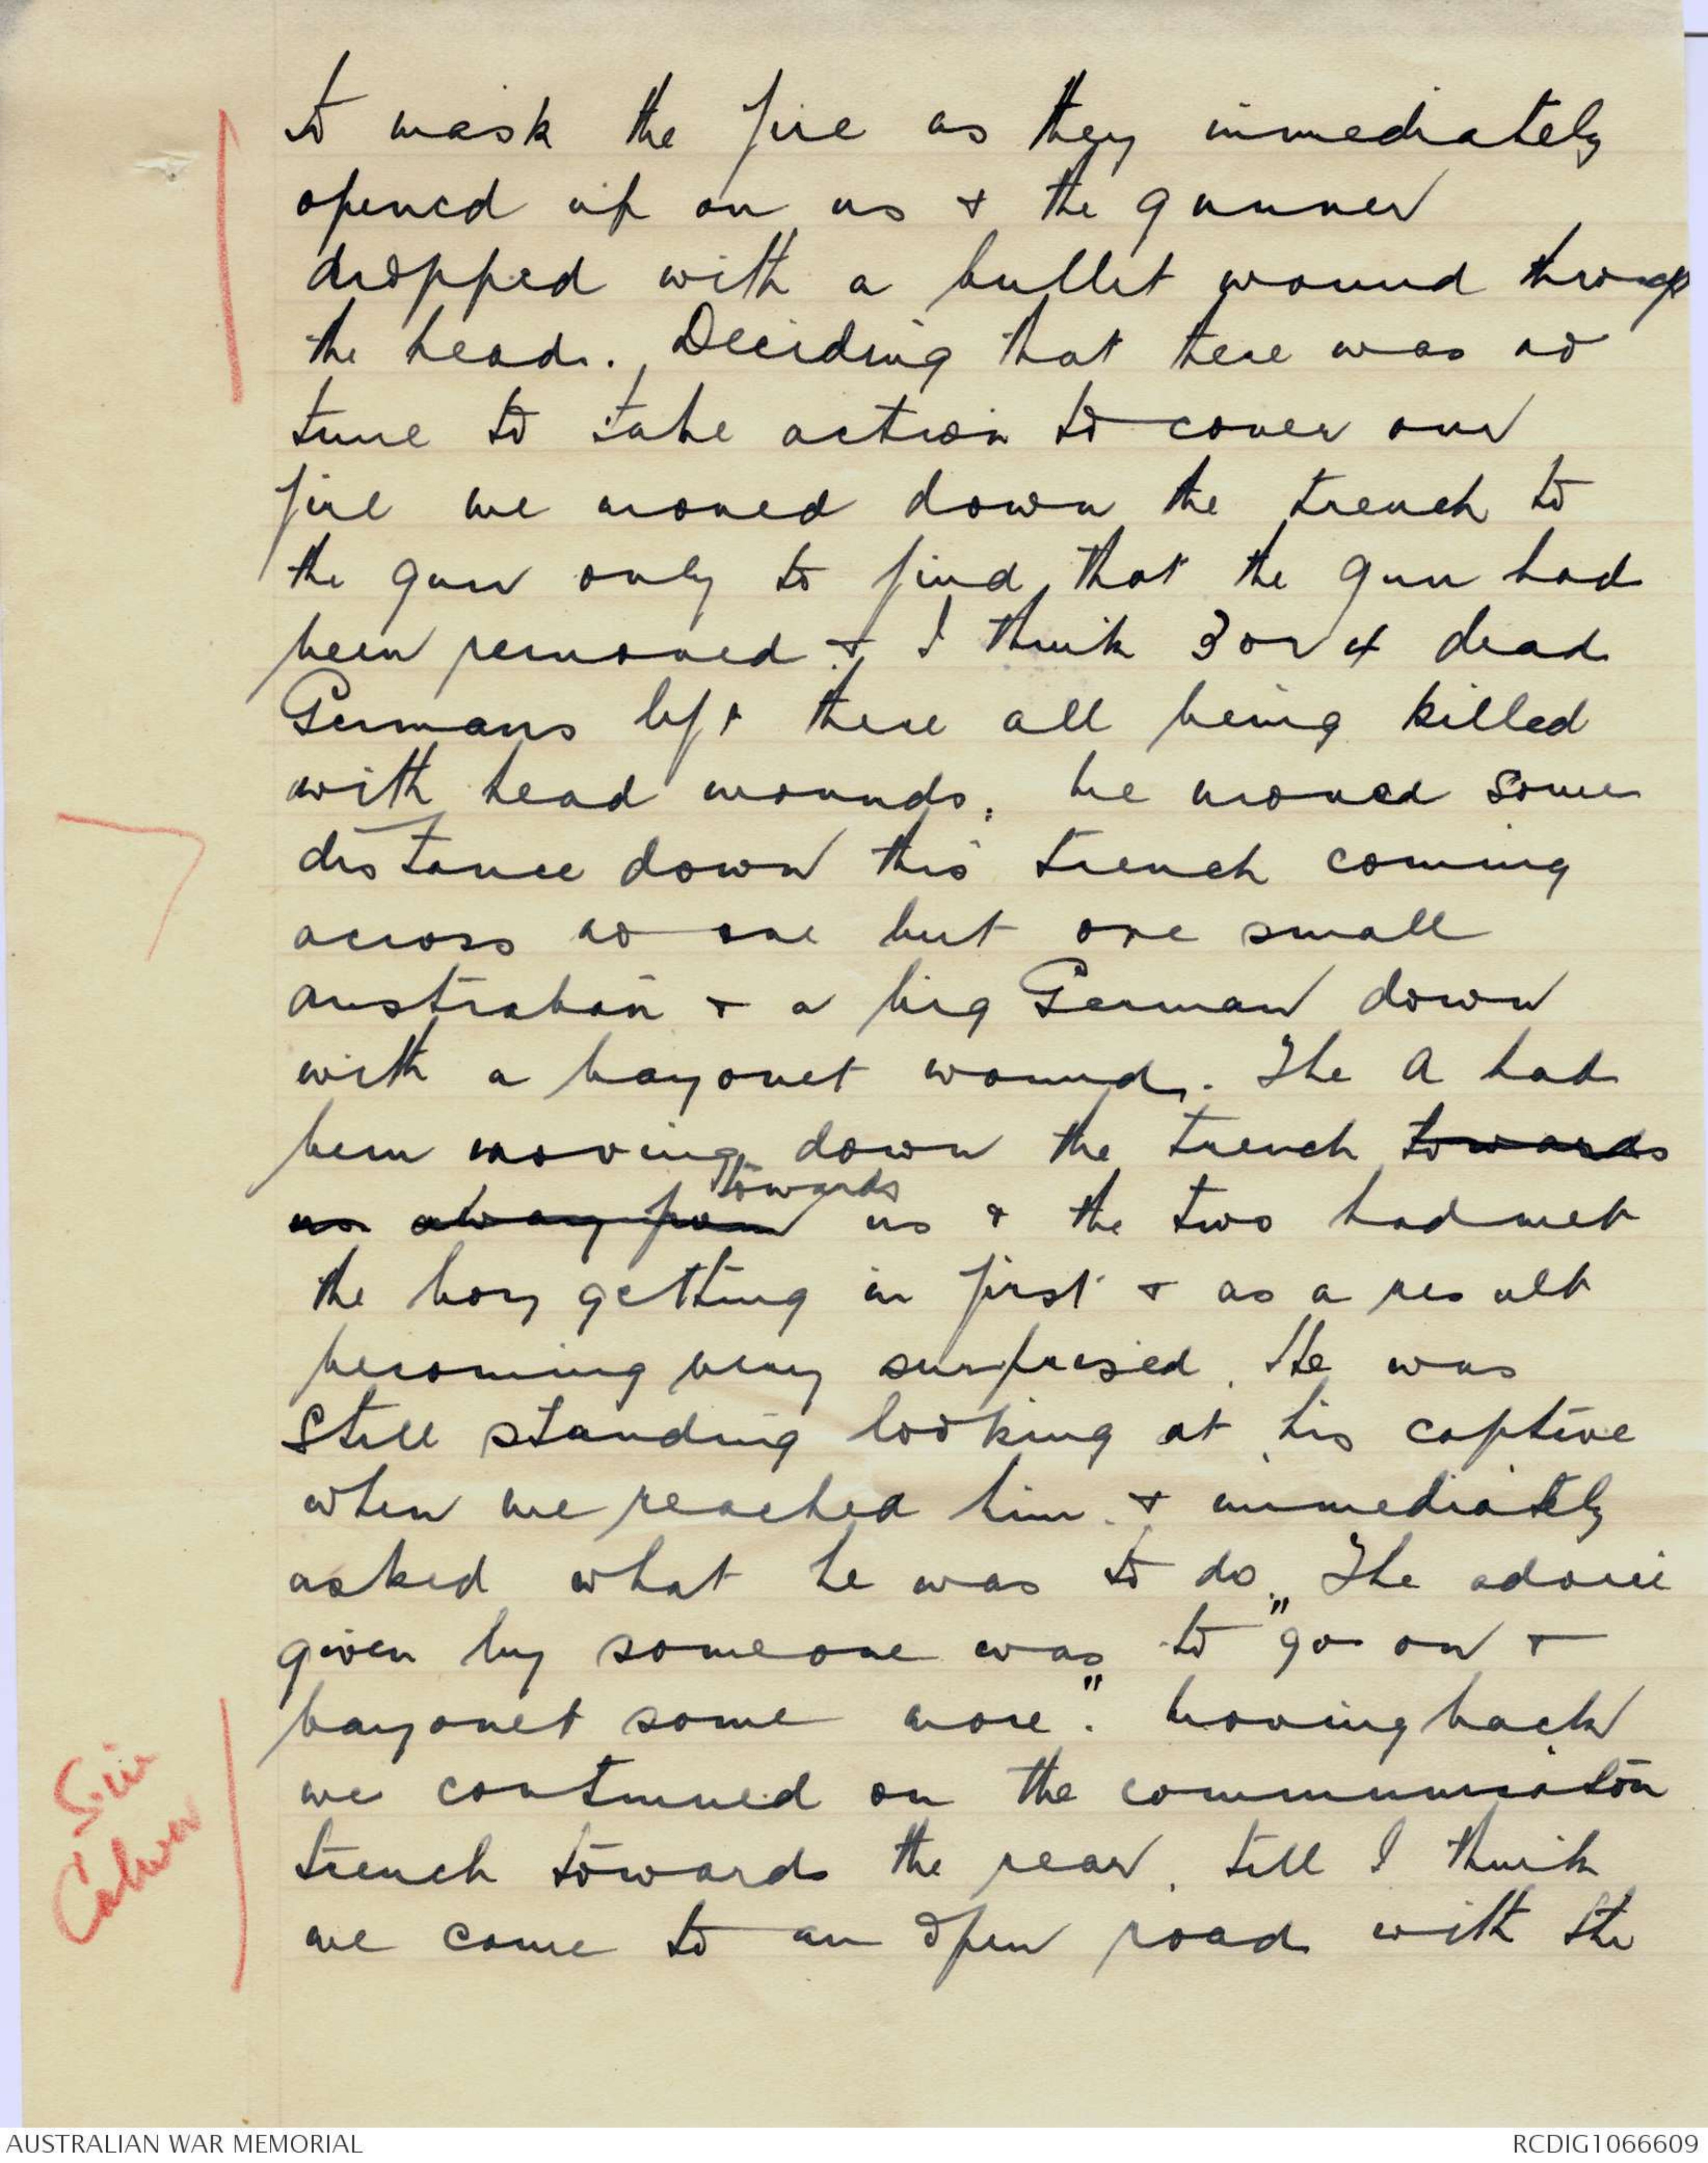 to mask the fire as they immediately
opened up on us & the gunner
dropped with a bullet wound through
the head. Deciding that there was no
time to take action to cover our
fire we moved down the trench to
the gun only to find that the gun had
been removed & I think 3 or 4 dead
Germans left there all being killed
with head wounds. We moved some
distance down this trench coming
across no one but one small
Australian & a big German down
with a bayonet wound. The A had
been moving down the trench towards
us away from towards us & the two had met
the boy getting in first & as a result
becoming very surprised. He was
still standing looking at his captive
when we reached him & immediately
asked what he was to do. The advice
given by someone was to "go on &
bayonet some more". Moving back
we continued on the communication
trench towards the rear, till I think
we came to an open road with the
AUSTRALIAN WAR MEMORIAL
RCDIG1066609